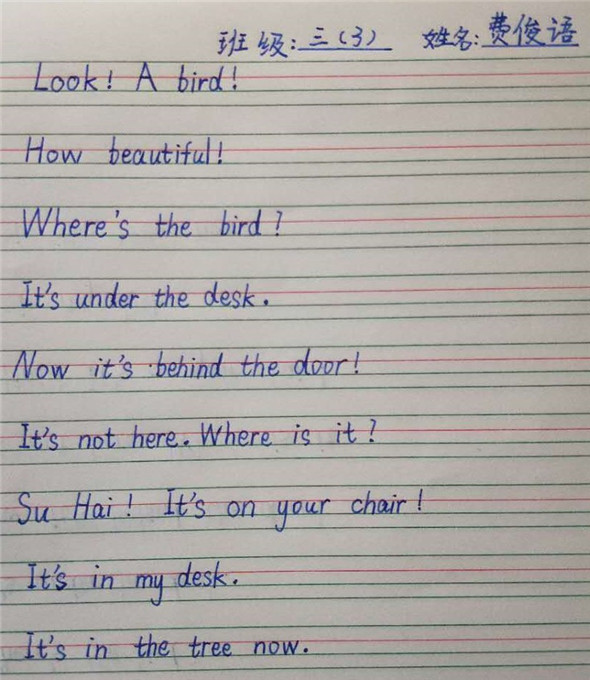 班级:三(3) 姓名:费俊语
Look! A bird!
How beautiful!
Where's the bird?
It's under the desk.
Now it's behind the door!
It's not here. Where is it?
Su Hai! It's on your chair!
It's in my desk.
It's in the tree now.